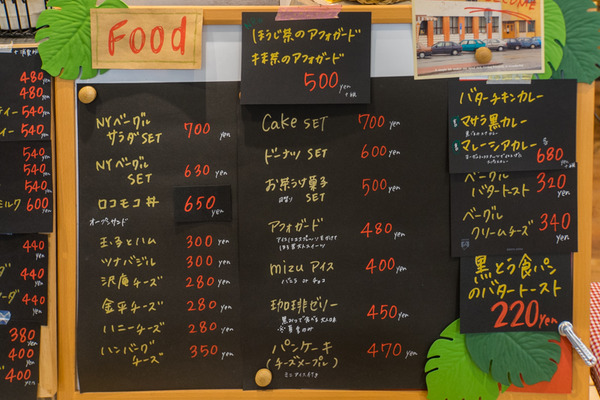 Food
ほうじ茶のアフォガード
抹茶のアフォガード
500yen
480
480
ティー 540
ティー 540
540
540
540
ミルク 600
440
440
ーダ 440
380
400
400
NYベーグル
サラダSET 700yen
NYベーグル
SET 630yen
ロコモコ丼 650yen
オープンサンド
玉子とハム 300yen
ツナバジル 300yen
沢庵チーズ 280yen
金平チーズ 280yen
ハニーチーズ 280yen
ハンバーグ
チーズ 350yen
Cake SET 700yen
ドーナツ SET 600yen
お茶うけ菓子
SET 500yen
アフォガード 480yen
mizu アイス 400yen
バニラ or チョコ
珈琲ゼリー 450yen
パンケーキ
(チーズメープル) 470yen
バターチキンカレー
マサラ黒カレー
マレーシアカレー
各
680yen
ベーグル
バタートースト 320yen
ベーグル
クリームチーズ 340yen
黒とう食パン
のバタートースト
220yen